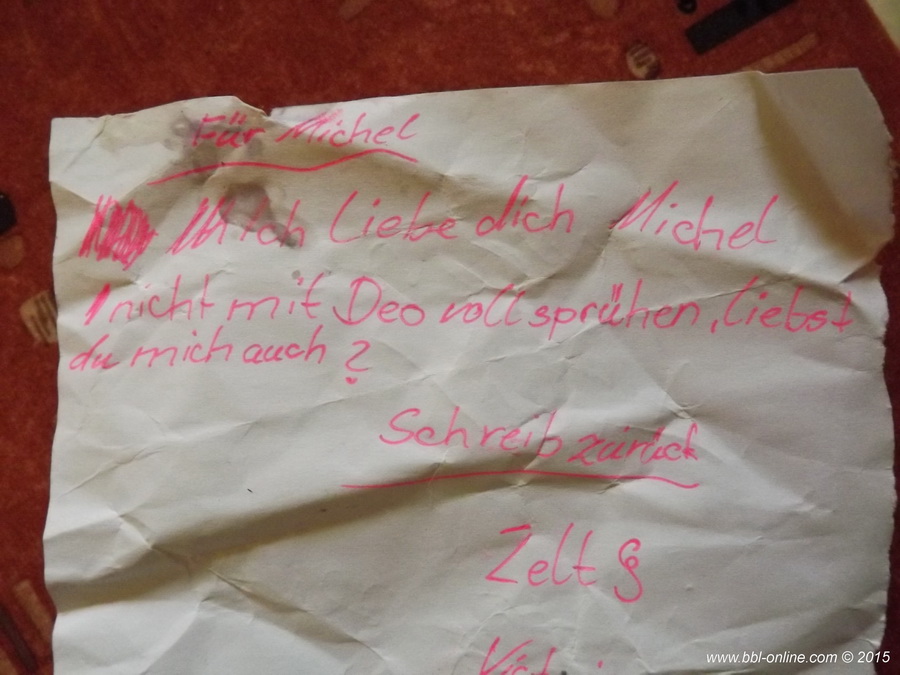 Für Michel
ich Liebe dich Michel
nicht mit Deo voll sprühen, liebst
du mich auch?
Schreib zurück
Zelt 8
www.bbl-online.com © 2015